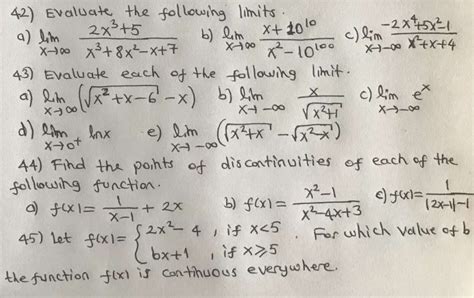 42) Evaluate the following limits.
a) lim x→∞ (2x³+5)/(x³+8x²-x+7) b) lim x→∞ (x+10¹⁰)/(x²-10¹⁰⁰) c) lim x→-∞ (-2x⁴+5x²-1)/(x²+x+4)
43) Evaluate each of the following limit.
a) lim x→∞ (√(x²+x-6) -x) b) lim x→-∞ x/√(x²+1) c) lim x→-∞ eˣ
d) lim x→0⁺ lnx e) lim x→-∞ (√(x²+x) - √(x²-x))
44) Find the points of discontinuities of each of the
following function.
a) f(x)= 1/(x-1) + 2x b) f(x)= (x²-1)/(x²-4x+3) c) f(x)= 1/(|2x-1|-1)
45) let f(x)= { 2x²-4 , if x<5 . For which value of b
bx+1 , if x≥5
the function f(x) is continuous everywhere.